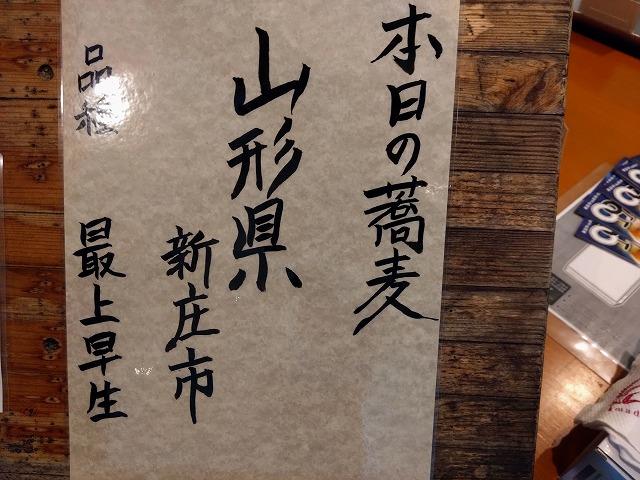 本日の蕎麦
山形県
新庄市
品種
最上早生